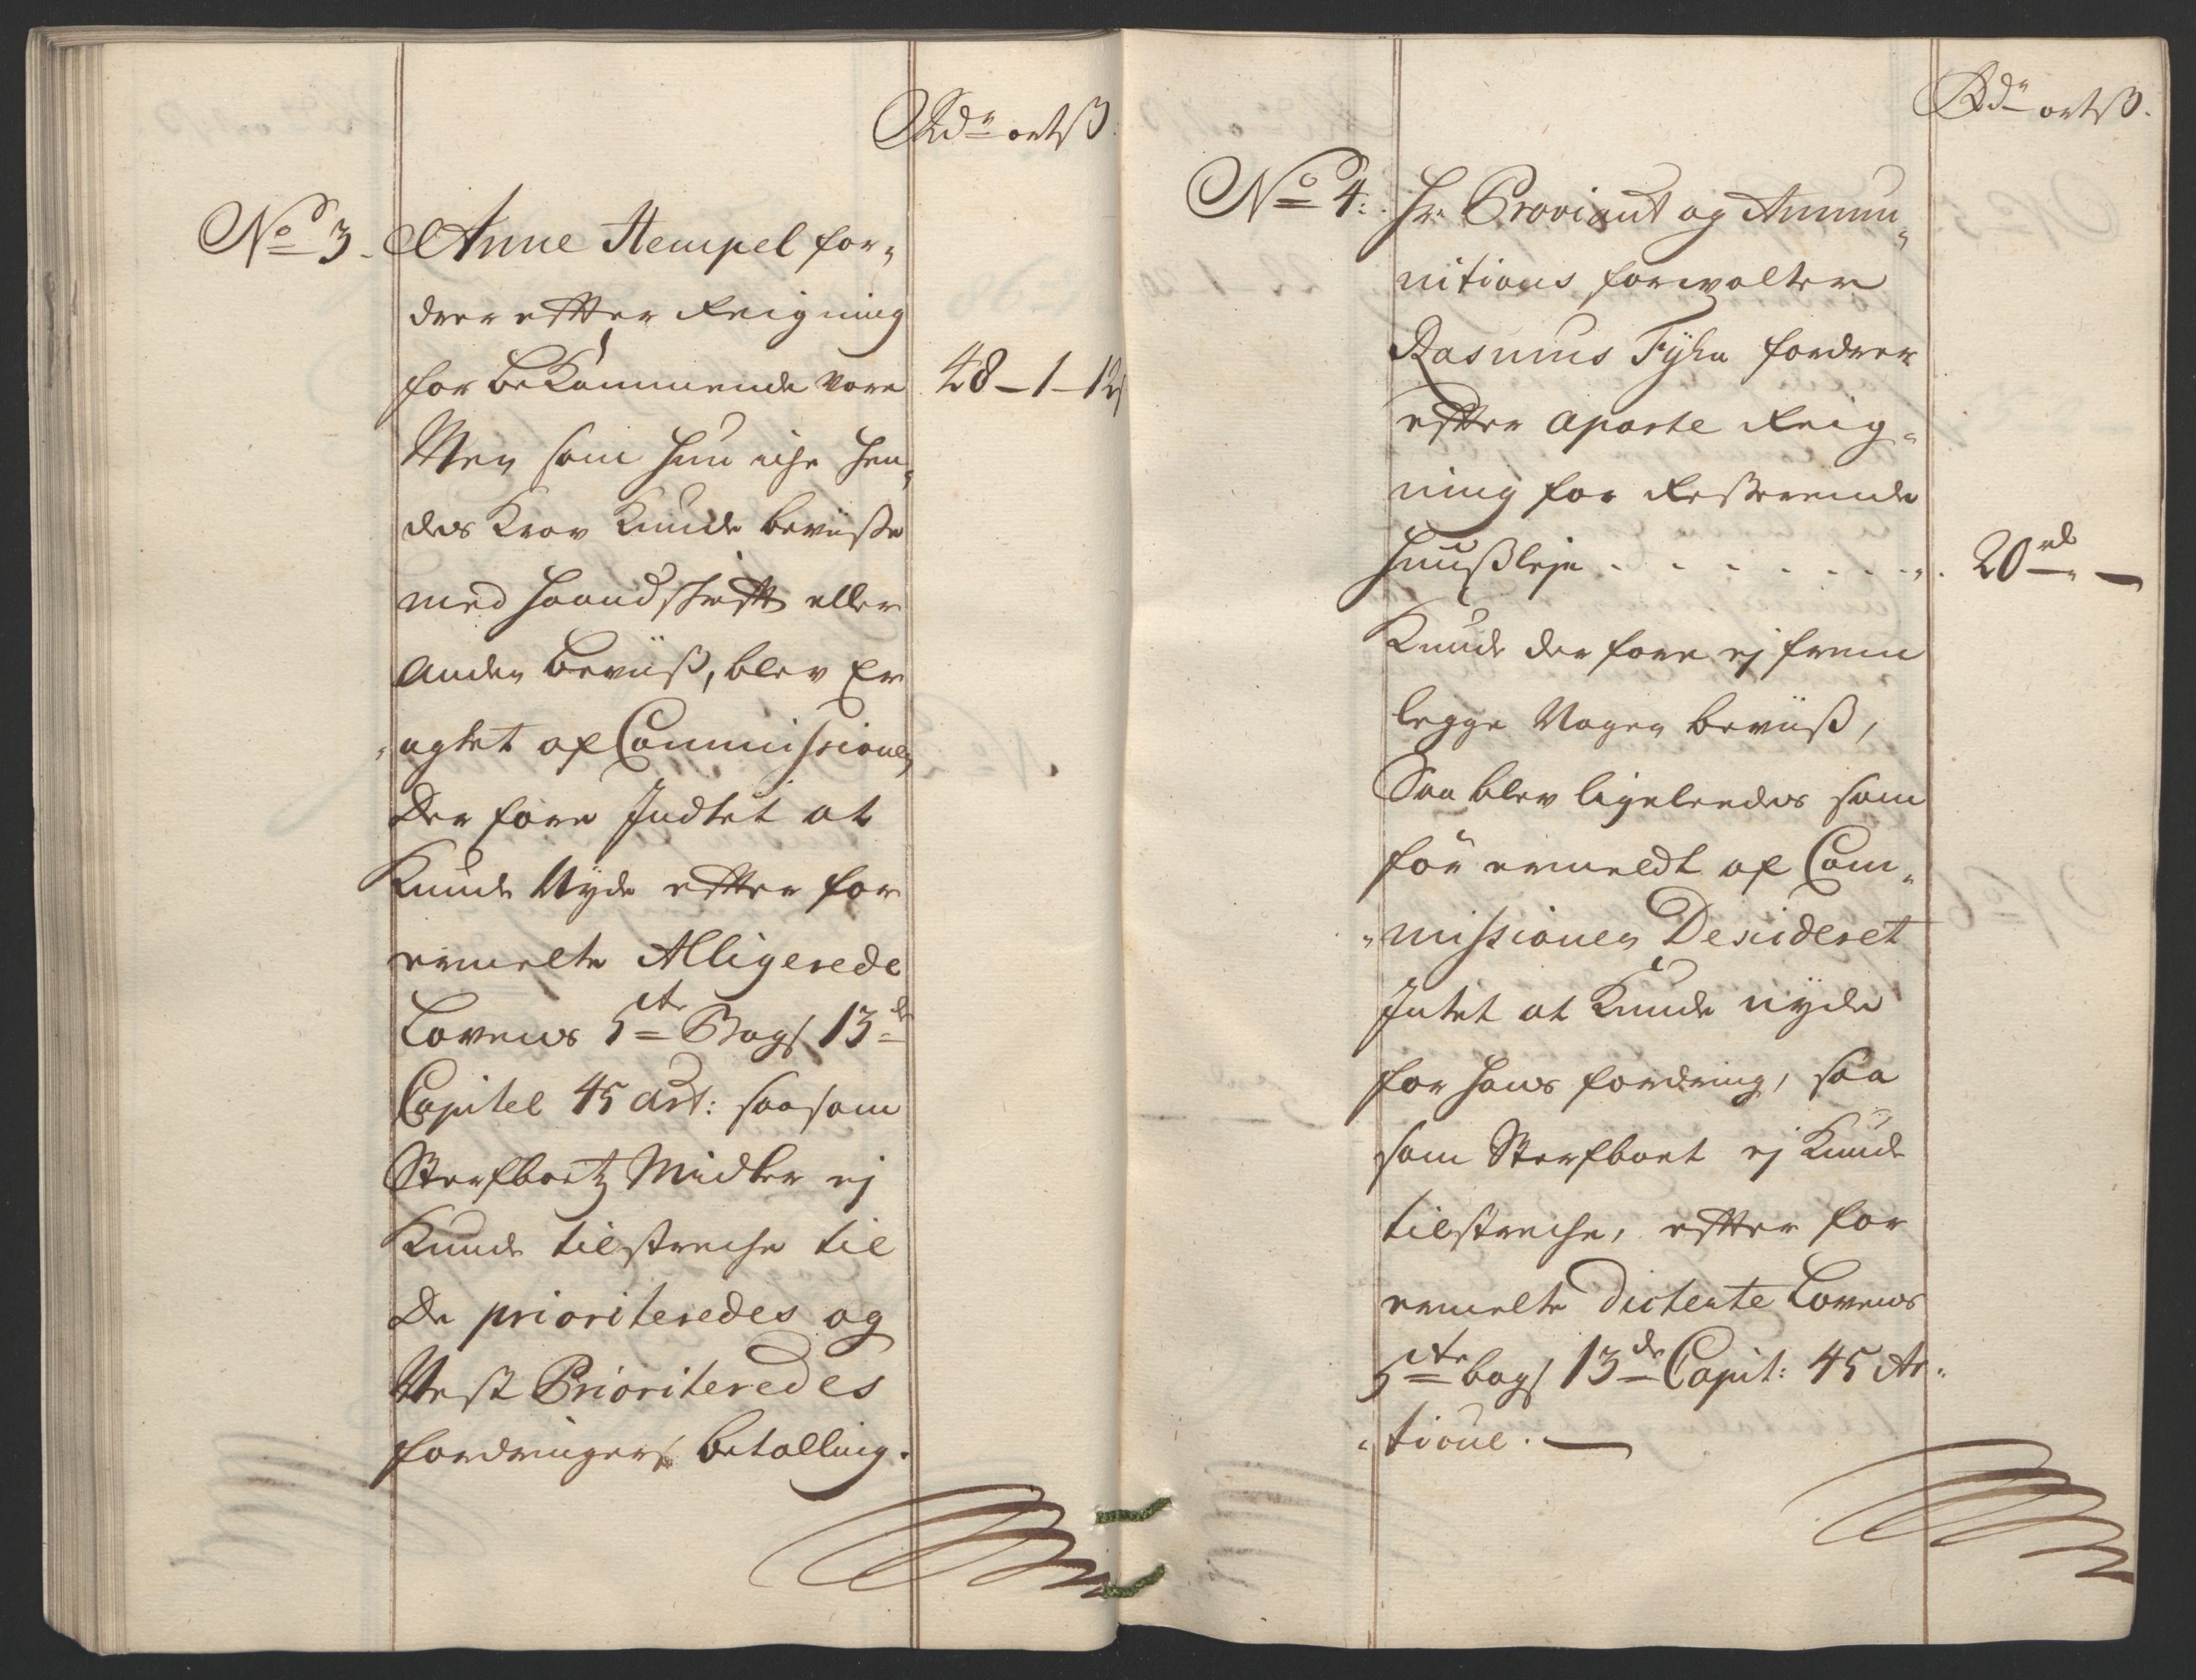 Rdr ort ß
No 3. Anne Hempel for„
drer effter Reigning
for bekommende vare 48 – 1 – 12
Men som hun iche hen„
des Krav kunde beviise
med haandskrifft eller
anden beviiß, blev Er
„agtet af Commissionen
der fore Indtet at
kunde Nyde effter for
ermelte Alligerede
Lovens 5te Bogs 13de
Capitel 45 Art: saasom
Sterfboetz Midler ej
kunde tilstreche til
de prioriteredes og
Nest Prioriteredes
fordringers betalling.
Rdr ort ß.
No 4. Hr. Proviant og Ammu„
nitions forvalter
Rasmus Tyhn fordrer
effter aparte Reig„
ning for Resterende
Huußleje . . . . . . . . 20 rd – „ –
Kunde der fore ej frem
legge Nogen beviiß,
Saa blev ligeleedes som
før ermeldt af Com„
„missionen Decideret
Intet at kunde nyde
for hans fordring, saa
som Sterfboet ej kunde
tilstreche, effter for
ermelte dicterte Lovens
5te bogs 13de Capit: 45 Ar„
„ticul. —